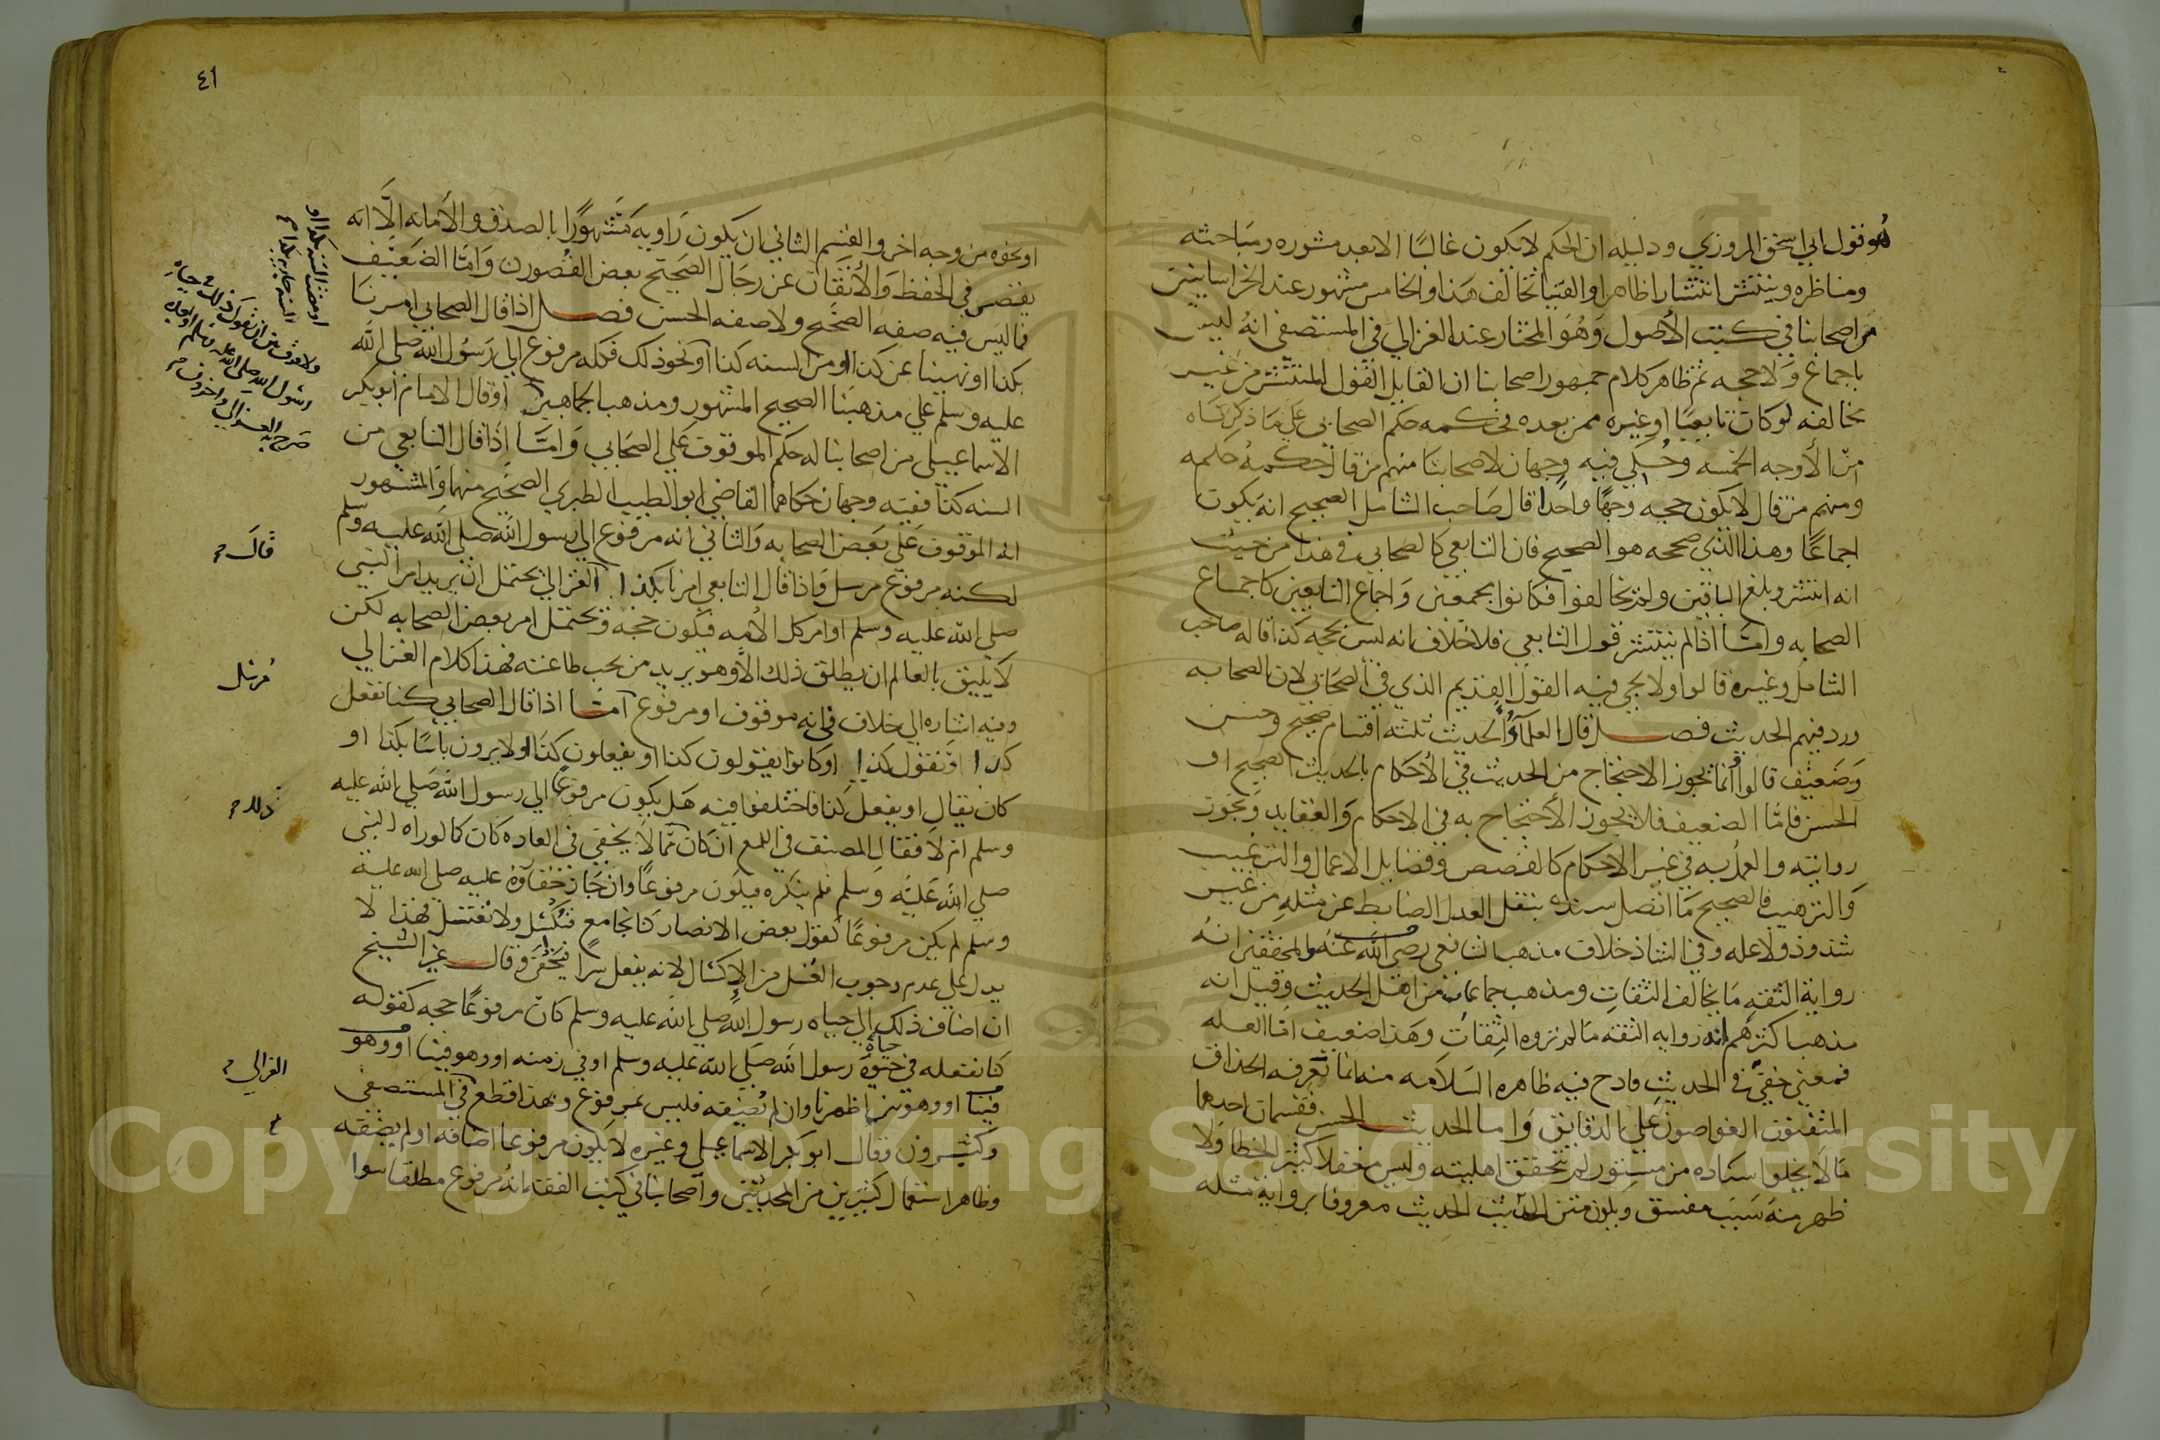 هو قول ابي اسحق المروزي ودليله ان الحكم لا يكون غالبا الا بعد مشوره ومباحثه
ومناظره وينتشر انتشارا ظاهرا والفتيا تخالف هذا والخامس مشهور عند الخراسانيين
من اصحابنا في كتب الأصول وهو المختار عند الغزالي في المستصفى انه ليس
باجماع ولا حجه ثم ظاهر كلام جمهور اصحابنا ان القايل القول المنتشر من غير
مخالفه لو كان تابعيا او غيره ممن بعده فحكمه حكم الصحابي على ما ذكرناه
من الأوجه الخمسه وحكي فيه وجهان لاصحابنا منهم من قال حكمه حكمه
ومنهم من قال لا يكون حجه وجها واحدا قال صاحب الشامل الصحيح انه يكون
اجماعا وهذا الذي صححه هو الصحيح فان التابعي كالصحابي في هذا من حيث
انه انتشر وبلغ الباقين ولم يخالفوا فكانوا مجمعين واجماع التابعين كاجماع
الصحابه وامتا اذا لم ينتشر قول التابعي فلا خلاف انه ليس بحجه كذا قاله صاحب
الشامل وغيره قالوا ولا يجي فيه القول القديم الذي في الصحابي لان الصحابه
ورد فيهم الحديث فصل قال العلماء الحديث ثلثه اقسام صحيح وحسن
وضعيف قالوا انما يجوز الاحتجاج من الحديث في الأحكام بالحديث الصحيح او
الحسن فامتا الضعيف فلا يجوز الأحتجاج به في الاحكام والعقايد وتجوز
روايته والعمل به في غير الاحكام كالقصص وفضايل الاعمال والترغيب
والترهيب فالصحيح ما اتصل سنده بنقل العدل الضابط عن مثله من غير
شذوذ ولا عله وفي الشاذ خلاف مذهب الشافعي رضي الله عنه والمحققين انه
رواية الثقه ما يخالف الثقات ومذهب جماعات من اهل الحديث وقيل انه
مذهب اكثرهم انه روايه الثقه ما لم تروه الثقات وهذا ضعيف امتا العله
فمعنى خفي في الحديث قادح فيه ظاهره السلامه منه انما تعرفه الحذاق
المتقنون الغواصون على الدقايق واما الحديث الحسن فقسمان احدهما
ما لا يخلو اسناده من مستور لم تتحقق اهليته وليس مغفلا كثير الخطا ولا
ظهر منه سبب مفسق ويكون متن الحديث معروفا برواية مثله
٤١
او نحوه من وجه اخر والقسم الثاني ان يكون راويه مشهورا بالصدق والأمانه الا انه
يقصر في الحفظ والأتقان عن رجال الصحيح بعض القصور وامتا الضعيف
فما ليس فيه صفه الصحيح ولا صفه الحسن فصل اذا قال الصحابي امرنا
بكذا او نهينا عن كذا او من السنه كذا او نحو ذلك فكله مرفوع الي رسول الله صلى الله
عليه وسلم علي مذهبنا الصحيح المشهور ومذهب الجماهير وقال الامام ابو بكر
الاسماعيلي من اصحابنا له حكم الموقوف علي الصحابي وامتا اذا قال التابعي من
السنه كذا ففيه وجهان حكاهما القاضي ابو الطيب الطبري الصحيح منهما والمشهور
انه الموقوف علي بعض الصحابه والثاني انه مرفوع الي رسول الله صلى الله عليه وسلم
لكنه مرفوع مرسل واذا قال التابعي امرنا بكذا الغزالي يحتمل ان يريد امر النبي
صلى الله عليه وسلم او امر كل الأمه فيكون حجه ويحتمل امر بعض الصحابه لكن
لا يليق بالعالم ان يطلق ذلك الا وهو يريد من تجب طاعته فهذا كلام الغزالي
وفيه اشاره الي خلاف في انه موقوف او مرفوع امتا اذا قال الصحابي كنا نفعل
كذا او نقول كذا او كانوا يقولون كذا او يفعلون كذا او لا يرون باسا بكذا او
كان يقال او يفعل كذا فاختلفوا فيه هل يكون مرفوعا الي رسول الله صلى الله عليه
وسلم ام لا فقال المصنف في اللمع ان كان مما لا يخفى في العاده كان كما لو راه النبي
صلى الله عليه وسلم فلم ينكره فيكون مرفوعا وان جاز خفاؤه عليه صلى الله عليه
وسلم لم يكن مرفوعا كقول بعض الانصار كنا نجامع فنكسل ولا نغتسل فهذا لا
يدل علي عدم وجوب الغسل من الاكسال لانه يفعل سرا فيخفى وقال غير الشيخ
ان اضاف ذلك الي حياه رسول الله صلى الله عليه وسلم كان مرفوعا حجه كقوله
كنا نفعله في حيوة رسول الله صلى الله عليه وسلم او في زمنه او وهو فينا او وهو
حياه
فينا او وهو بين اظهرنا وان لم يضفه فليس بمرفوع وبهذا قطع في المستصفى
وكثيرون وقال ابو بكر الاسماعيلي وغيره لا يكون مرفوعا اضافه او لم يضفه
وظاهر استعمال كثيرين من المحدثين واصحابنا في كتب الفقه انه مرفوع مطلقا سوا
او مضت السنه بكذا او
السنه جاريه بكذا
ولا فرق بين ان يقول ذلك في حياه
رسول الله صلى الله عليه وسلم او بعده
صرح به الغزالي واخرون
قال
مرسل
ذلك
الغزالي
Copyright © King Saud University